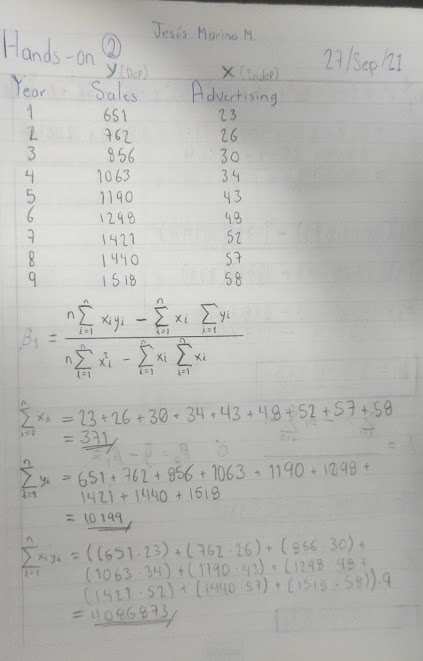 Jesús Marino M.
Hands-on ② 27/Sep/21
y (Dep) x (indep)
Year Sales Advertising
1 651 23
2 762 26
3 856 30
4 1063 34
5 1190 43
6 1298 48
7 1421 52
8 1440 57
9 1518 58
β₁ = (n∑ᵢ₌₁ⁿ xᵢyᵢ − ∑ᵢ₌₁ⁿ xᵢ ∑ᵢ₌₁ⁿ yᵢ) / (n∑ᵢ₌₁ⁿ xᵢ² − ∑ᵢ₌₁ⁿ xᵢ ∑ᵢ₌₁ⁿ xᵢ)
∑ᵢ₌₁ⁿ xᵢ = 23+26+30+34+43+48+52+57+58
= 371//
∑ᵢ₌₁ⁿ yᵢ = 651+762+856+1063+1190+1298+
1421+1440+1518
= 10199//
∑ᵢ₌₁ⁿ xᵢyᵢ = ((651·23)+(762·26)+(856·30)+
(1063·34)+(1190·43)+(1298·48)+
(1421·52)+(1440·57)+(1518·58))·9
= 4086873//